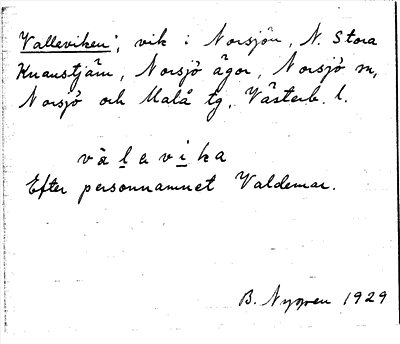 Valleviken, vik i Norsjön, N. Stora
Knaustjärn, Norsjö ägor, Norsjö sn,
Norsjö och Malå tg, Västerb. l.
välavika
Efter personnamnet Valdemar.
B. Nygren 1929